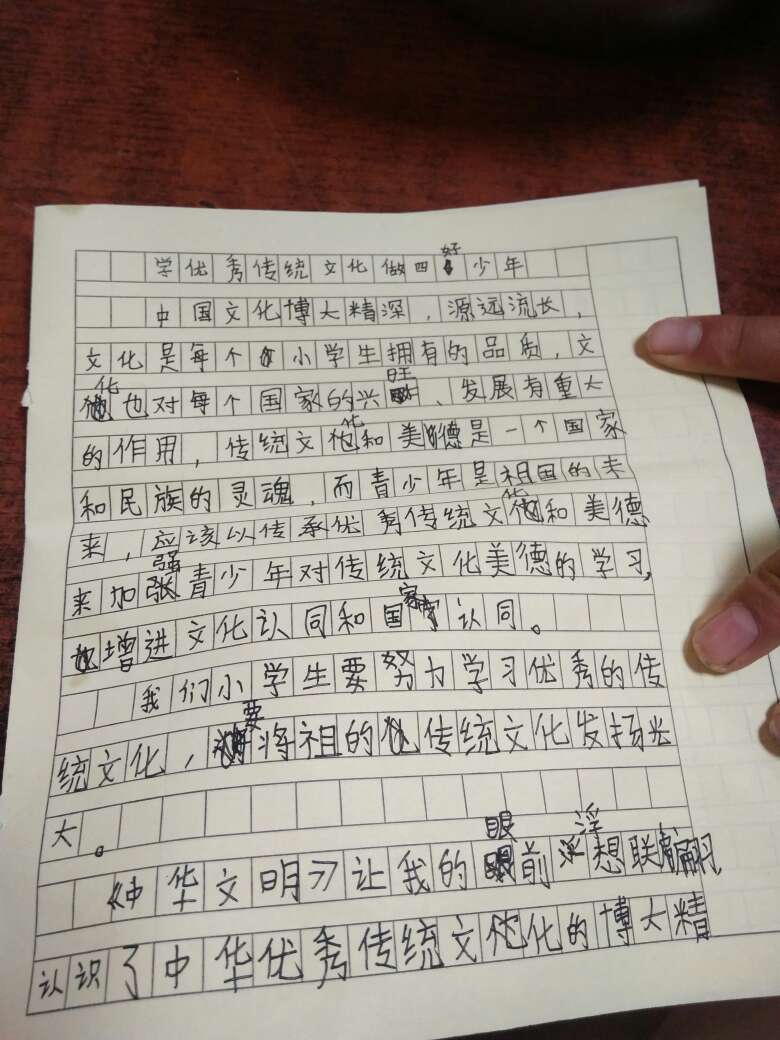 学优秀传统文化做四好少年
中国文化博大精深，源远流长，
文化是每个小学生拥有的品质，文
化也对每个国家的兴旺、发展有重大
的作用，传统文化和美德是一个国家
和民族的灵魂，而青少年是祖国的未
来，应该以传承优秀传统文化和美德
来加强青少年对传统文化美德的学习，
增进文化认同和国家认同。
我们小学生要努力学习优秀的传
统文化，要将祖的传统文化发扬光
大。
《中华文明》让我的眼前浮想联翩，
认识了中华优秀传统文化的博大精